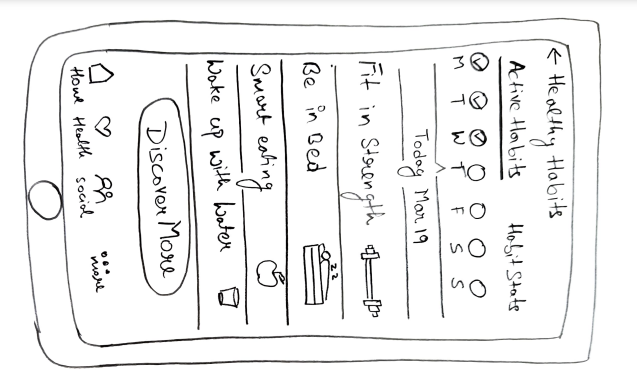 ← Healthy Habits
Active Habits Habit Stats
M T W T F S S
Today Mar 19
Fit in Strength
Be in Bed
zz
Smart eating
Wake up with Water
Discover More
Home Health Social more